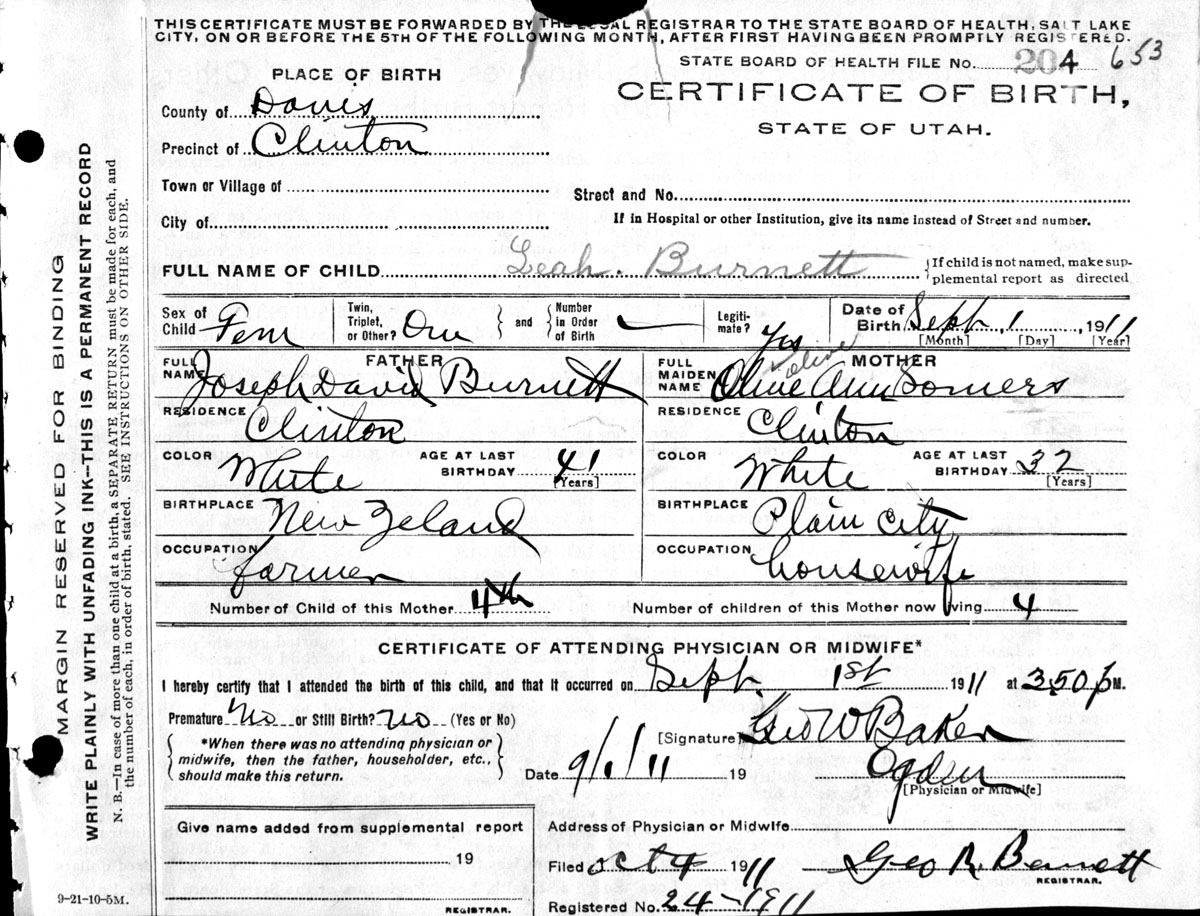 THIS CERTIFICATE MUST BE FORWARDED BY THE LOCAL REGISTRAR TO THE STATE BOARD OF HEALTH, SALT LAKE
CITY, ON OR BEFORE THE 5TH OF THE FOLLOWING MONTH, AFTER FIRST HAVING BEEN PROMPTLY REGISTERED.
STATE BOARD OF HEALTH FILE No. 204 653
PLACE OF BIRTH
CERTIFICATE OF BIRTH,
STATE OF UTAH.
County of Davis
Precinct of Clinton
Town or Village of
Street and No.
City of
If in Hospital or other Institution, give its name instead of Street and number.
FULL NAME OF CHILD Leah. Burnett {If child is not named, make sup-
plemental report as directed
Sex of Child Fem
Twin, Triplet, or Other? One } and { Number in Order of Birth
Legiti-mate? Yes
Date of Birth Sept 1, 1911
[Month] [Day] [Year]
FATHER
FULL NAME Joseph David Burnett
MOTHER
Olive
FULL MAIDEN NAME Olive Ann Somers
RESIDENCE Clinton
RESIDENCE Clinton
COLOR White AGE AT LAST BIRTHDAY 41 [Years]
COLOR White AGE AT LAST BIRTHDAY 32 [Years]
BIRTHPLACE New Zeland
BIRTHPLACE Plain City
OCCUPATION farmer
OCCUPATION housewife
Number of Child of this Mother 4th
Number of children of this Mother now living 4
CERTIFICATE OF ATTENDING PHYSICIAN OR MIDWIFE*
I hereby certify that I attended the birth of this child, and that it occurred on Sept. 1st 1911 at 350 p M.
Premature No or Still Birth? No (Yes or No)
*When there was no attending physician or
midwife, then the father, householder, etc.,
should make this return.
[Signature] Geo W Baker
Date 9/1/11 19
Ogden
[Physician or Midwife]
Give name added from supplemental report
19
REGISTRAR.
Address of Physician or Midwife
Filed Oct 4 1911 Geo R. Bennett
REGISTRAR.
Registered No. 24-1911
9-21-10-5M.
MARGIN RESERVED FOR BINDING
WRITE PLAINLY WITH UNFADING INK--THIS IS A PERMANENT RECORD
N. B.—In case of more than one child at a birth, a SEPARATE RETURN must be made for each, and
the number of each, in order of birth, stated. SEE INSTRUCTIONS ON OTHER SIDE.